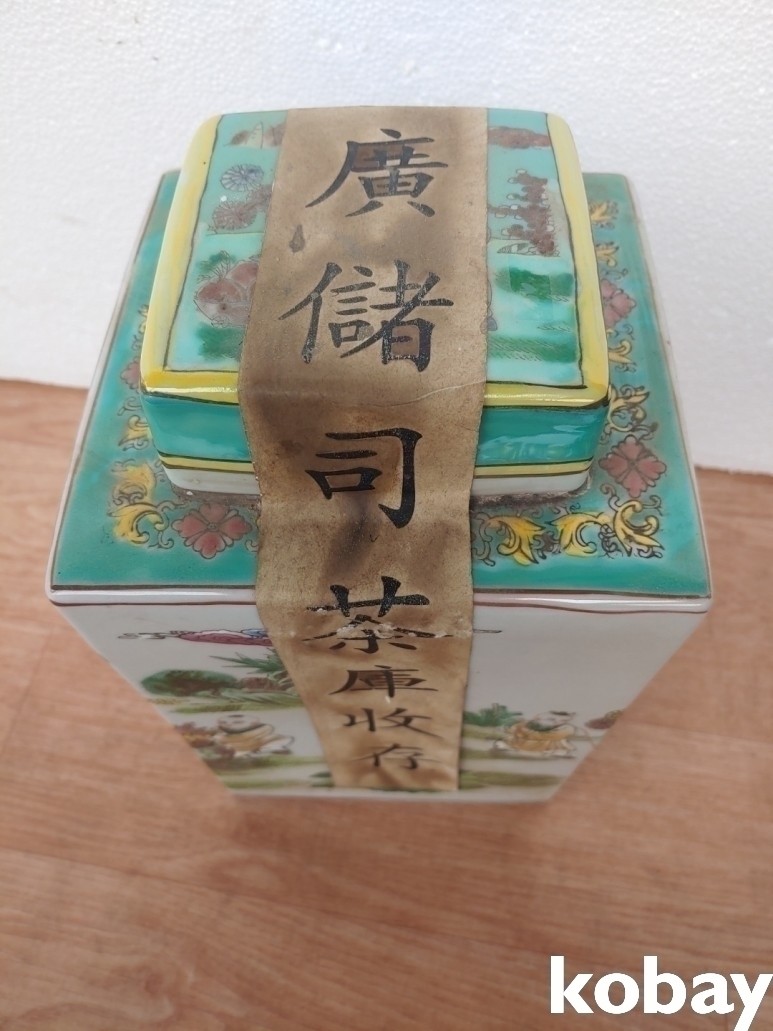 廣儲司茶庫收存
kobay